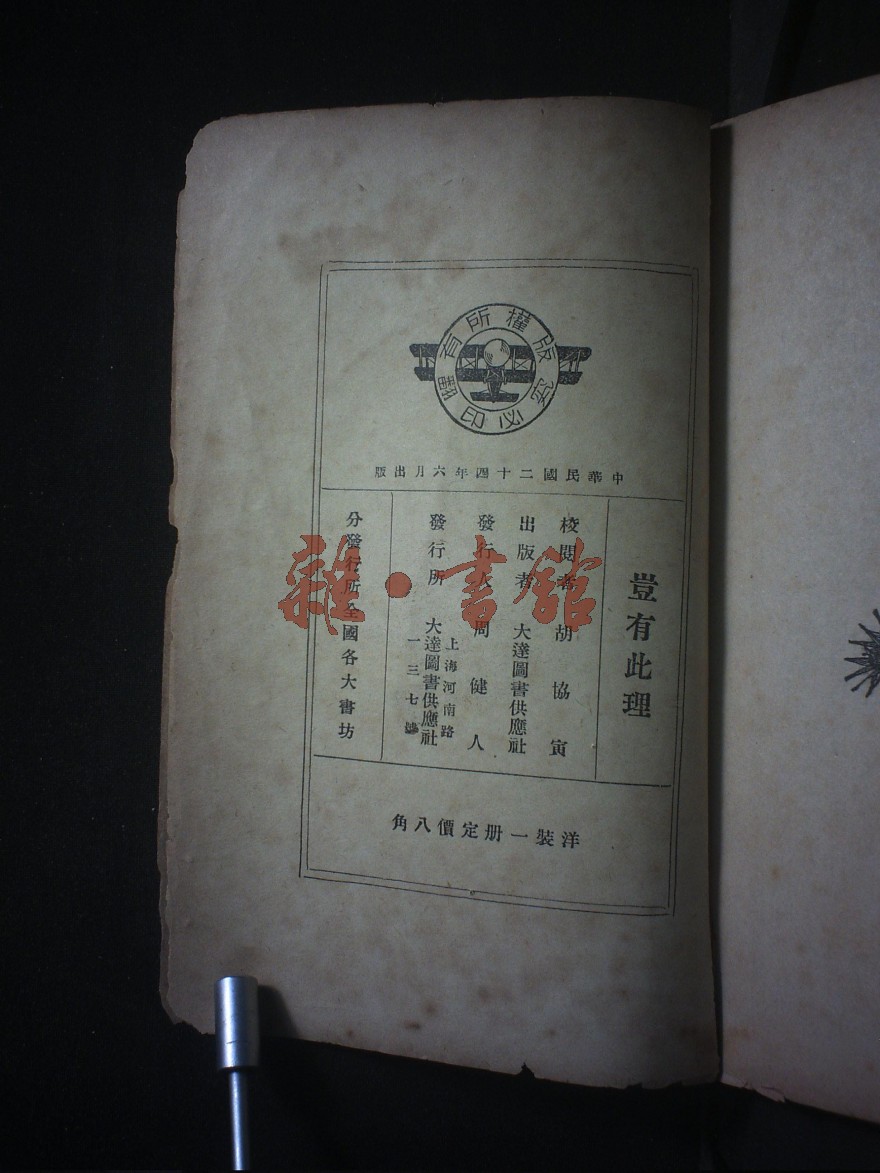 版權所有翻印必究
中華民國二十四年六月出版
豈有此理
校閱者 胡協寅
出版者 大達圖書供應社
發行人 周健人
發行所 大達圖書供應社
上海河南路
一三七號
分發行所全國各大書坊
洋裝一册定價八角
雜·書館